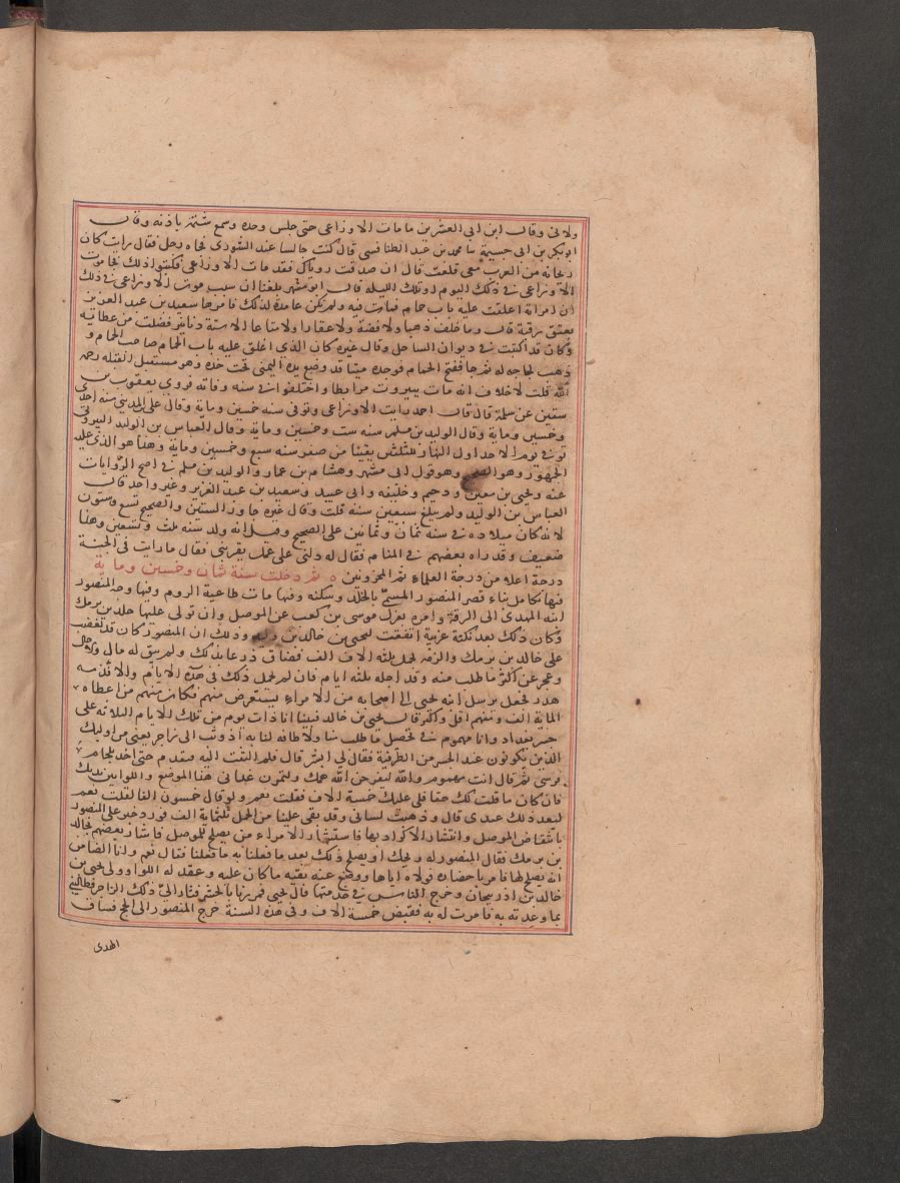 ولا بى وقال ابن ابى العشرين ما مات الاوزاعى حتى جلس وحده وسمع شتمه باذنه وقال
ابو بكر بن ابى خيثمة سا محمد بن عبيد الطنافسى قال كنت جالسا عند الثورى فجاه رجل فقال رايت كان
ريحانة من العرب قلعت قال ان صدقت روياك فقد مات الاوزاعى فكتبوا ذلك فجا موت
الاوزاعى فى ذلك اليوم او تلك الليله قال ابو مشهر بلغنا ان سبب موت الاوزاعى
ان امراته اغلقت عليه باب حمام فمات فيه ولم تكن عامدة لذلك فامرها سعيد بن عبد العزيز
بعتق رقبة قال وما خلف ذهبا ولا فضة ولا عقارا ولا متاعا الا ستة دنانير فضلت من عطائه
وكان قد اكتتب فى ديوان الساحل وقال غيره كان الذى اغلق عليه باب الحمام صاحب الحمام و
ذهب لحاجه له ثم جا ففتح الحمام فوجده ميتا قد وضع يده اليمنى تحت خده وهو مستقبل القبله رحمه
الله قلت لا خلاف انه مات ببيروت مرابطا واختلفوا فى سنه وفاته فروى يعقوب بن
عن سلمة قال قال احمد رايت الاوزاعى وتوفى سنه خمسين وماية وقال على المدينى سنه احدى
وخمسين وماية وقال الوليد بن مسلم سنه ست وخمسين وماية وقال العباس بن الوليد البيروتى
توفى يوم الاحد اول النهار لليلتين بقيتا من صفر سنه سبع وخمسين وماية وهذا هو الذى عليه
الجمهور وهو الصحيح وهو قول ابى مشهر وهشام بن عمار والوليد بن مسلم فى اصح الروايات
عنه ويحيى بن معين ودحيم وخليفه وابى عبيد وسعيد بن عبد العزيز وغير واحد قال
العباس بن الوليد ولم يبلغ سبعين سنه قلت وقال غيره جاوز السبعين والصحيح تسع وستون
لانه كان ميلاده فى سنه ثمان وثمانين على الصحيح وقيل انه ولد سنه ثلث وتسعين وهذا
ضعيف وقد راه بعضهم فى المنام فقال له دلنى على عمل يقربنى فقال ما رايت فى الجنة
درجة اعلا من درجة العلماء ثم المحزونين ٥ ثم دخلت سنة ثمان وخمسين وماية
فيها تكامل بناء قصر المنصور المسمى بالخلد وسكنه وفيها مات طاغية الروم وفيها وجه المنصور
ابنه المهدى الى الرقة وامره بعزل موسى بن كعب عن الموصل وان تولى عليها خالد بن برمك
وكان ذلك بعد نكتة غريبة اتفقت ليحيى بن خالد بن وذلك ان المنصور كان قد تغضب
على خالد بن برمك والزمه بحمل ثلثه الاف الف فضاق ذرعا بذلك ولم يبق له مال ولا حال
وعجز عن اكثر ما طلب منه وقد اجله ثلثه ايام فان لم يحمل ذلك فى هذه الايام والا فدمه
هدر فجعل يرسل ابنه يحيى الى اصحابه من الامراء يستقرض منهم فكان منهم من اعطاه
الماية الف ومنهم اقل واكثر قال يحيى بن خالد فبينا انا ذات يوم من تلك الايام الثلاثه على
جسر بغداد وانا مهموم فى تحصيل ما طلب منا ولا طاقه لنا به اذ وثب الى زاجر يعنى من اوليك
الذين يكونون عند الجسر من الطرقية فقال لى ابشر قال فلم التفت اليه فتقدم حتى اخذ بلجام
فرسى ثم قال انت مهموم والله ليفرجن الله همك ولتمرن غدا فى هذا الموضع واللوا بين يديك
فان كان ما قلت لك حقا فلى عليك خمسة الاف فقلت نعم ولو قال خمسون الفا لقلت نعم
لبعد ذلك عندى قال وذهبت لشانى وقد بقى علينا من الحمل ثلثماية الف فورد خبر على المنصور
بانتقاض الموصل وانتشار الاكراد بها فاستشار الامراء من يصلح للموصل فاشار بعضهم بخالد
بن برمك فقال المنصور له ويحك او يصلح ذلك بعد ما فعلنا به ما فعلنا فقال نعم وانا الضامن
انه يصلح لها فامر باحضاره فولاه اياها ووضع عنه بقيه ما كان عليه وعقد له اللوا وولى يحيى بن
خالد بن اذربيجان وخرج الناس فى خدمتهما قال يحيى فمررنا بالجسر فثار الى ذلك الزاجر فطالبنى
بما وعدته به فامرت له به فقبض خمسة الاف وفى هذه السنة خرج المنصور الى الحج فساق
الهدى